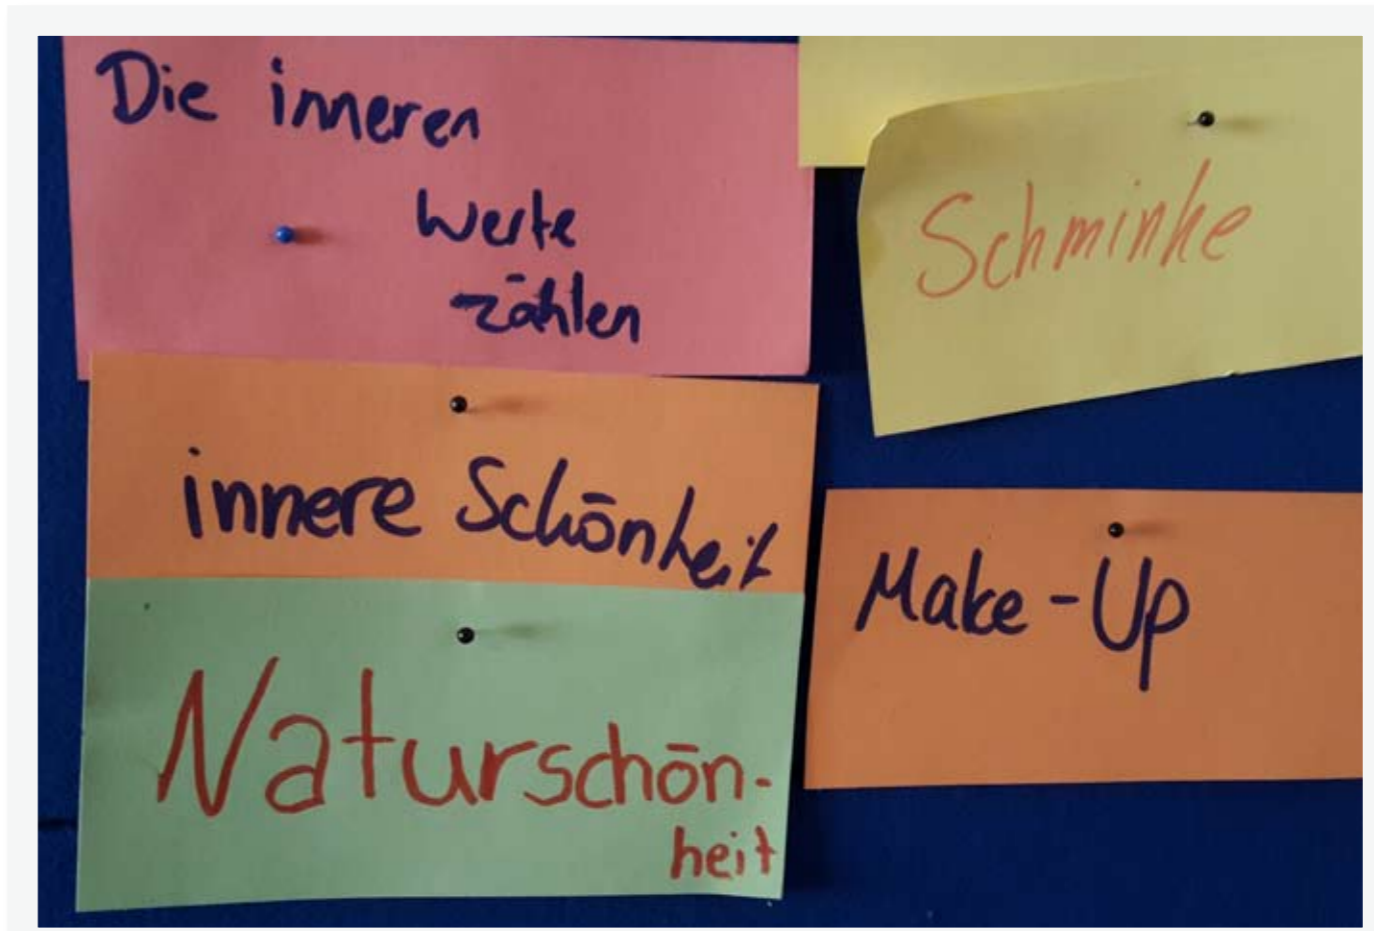 Die inneren
Werte
zählen
Schminke
innere Schönheit
Make-Up
Naturschön-
heit